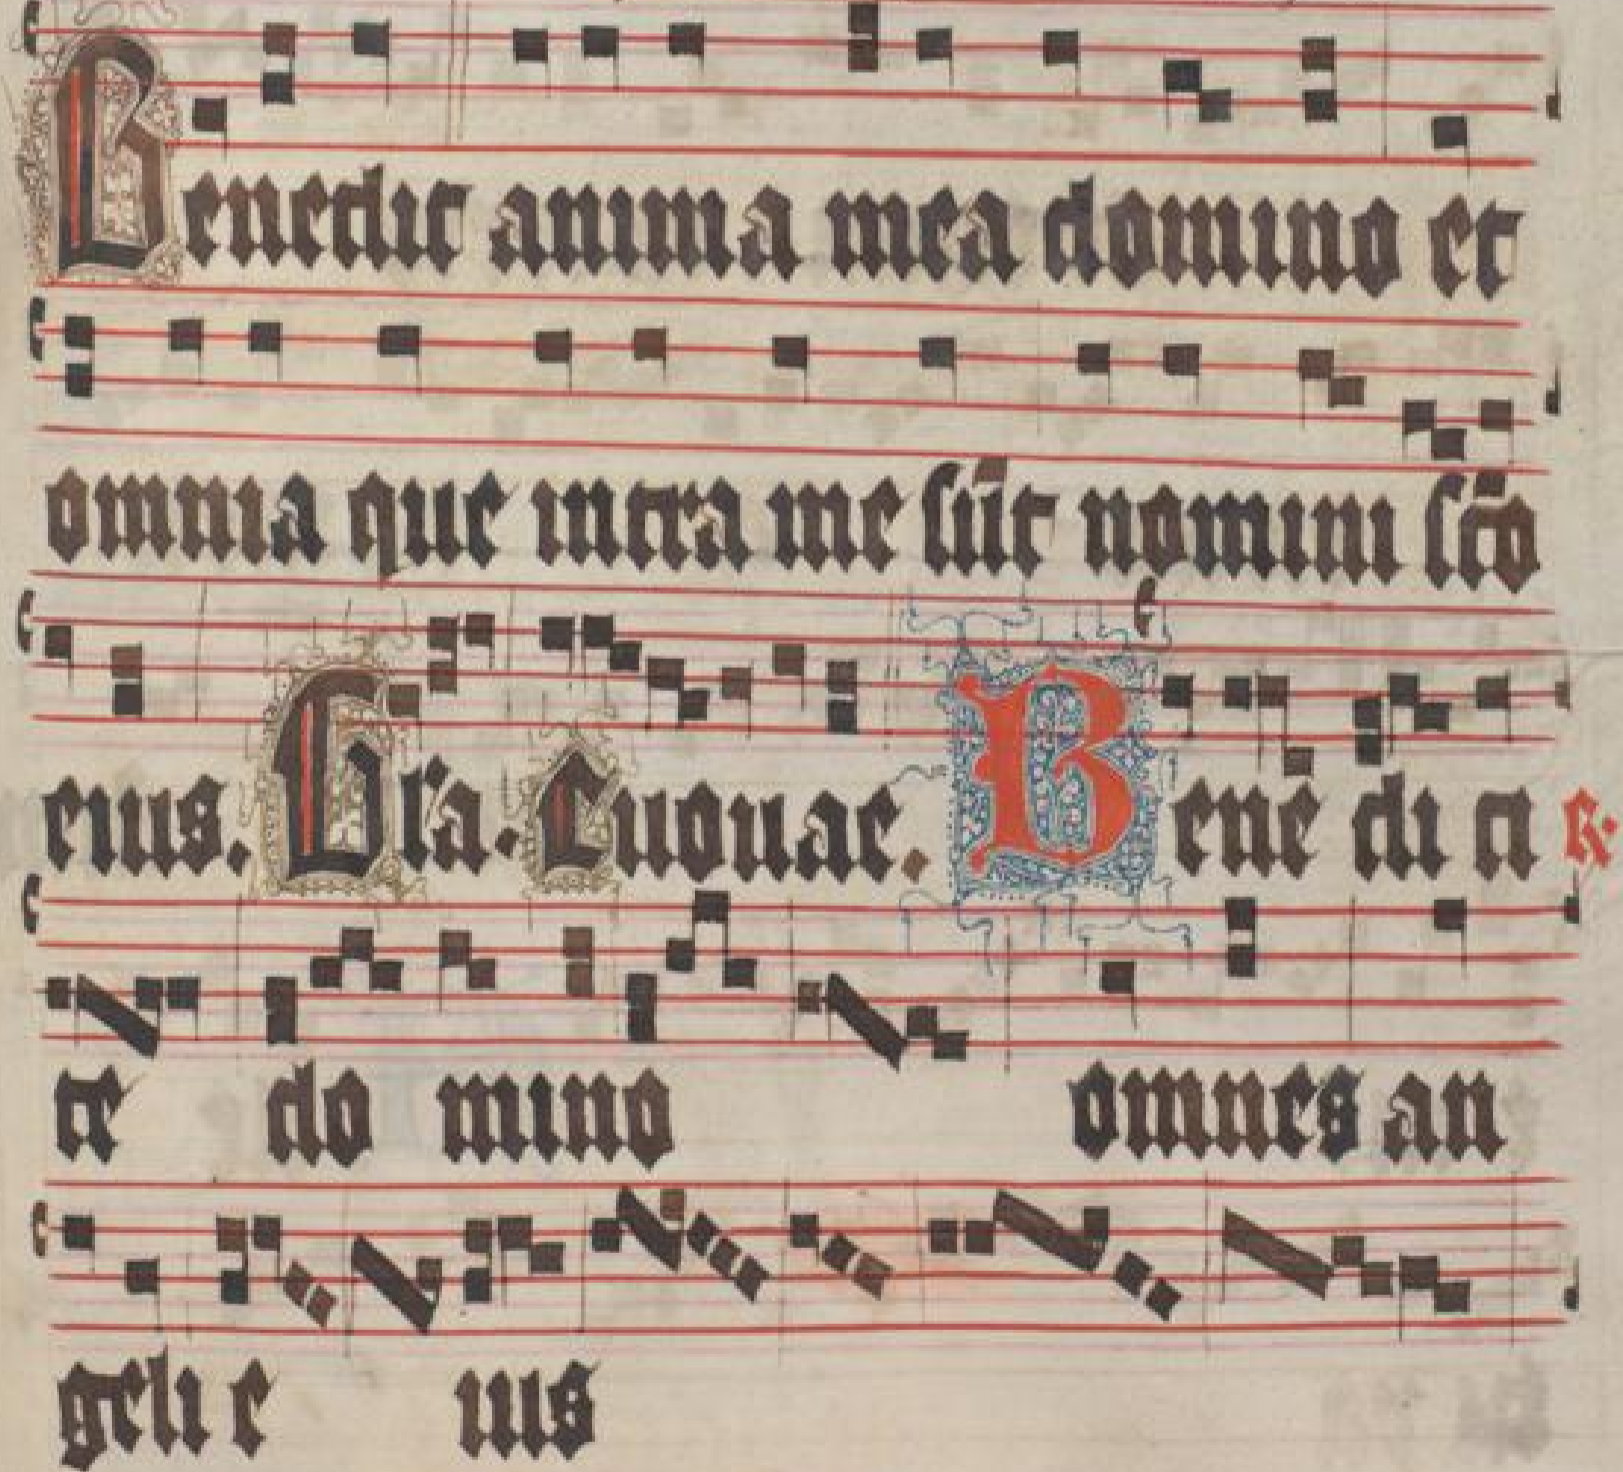 Benedic anima mea domino et
omnia que intra me sūt nomini sc̄o
eius. Gl'ia. Euouae. Bene di ci R.
te do mino omnes an
geli e ius